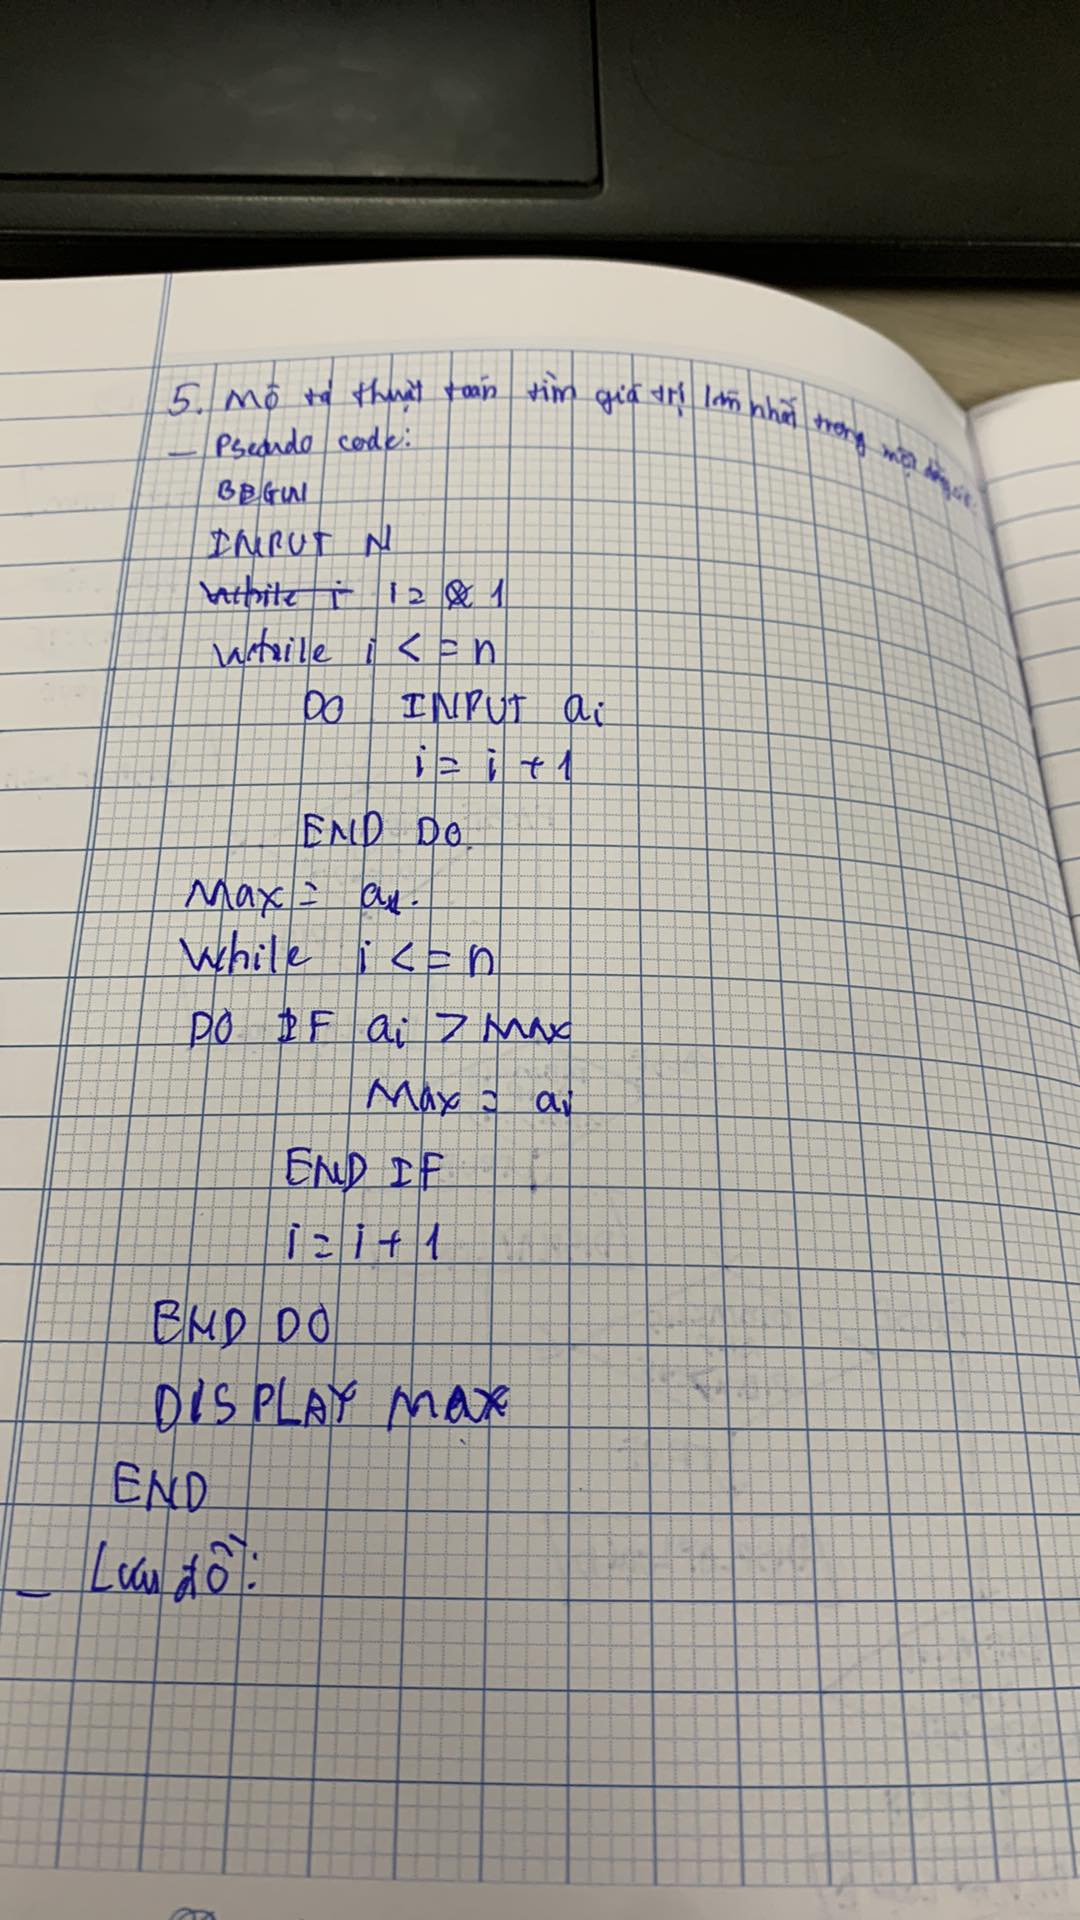 5. Mô tả thuật toán tìm giá trị lớn nhất trong một dãy số:
– Pseudo code:
BEGIN
INPUT N
While i i = 1
While i <= n
DO INPUT ai
i = i + 1
END DO
Max = a1.
While i <= n
DO IF ai > MAX
Max = ai
END IF
i = i + 1
END DO
DISPLAY MAX
END
– Lưu đồ: